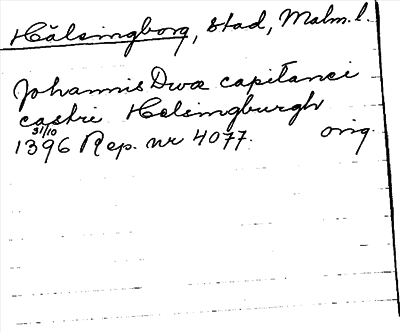 Hälsingborg, stad, Malm. l.
Johannis Dvæ capitanei
castri Helsingburgh
31/10
1396 Rep. nr 4077. orig.